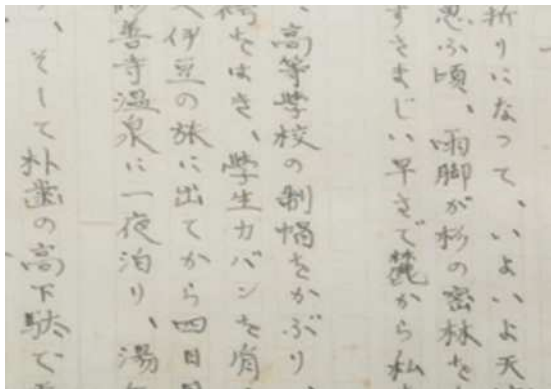 折りになって、いよいよ天
思ふ頃、雨脚が杉の密林を
すさまじい早さで麓から私
、高等學校の制帽をかぶり、
袴をはき、學生カバンを肩の
伊豆の旅に出てから四日
善寺温泉に一夜泊り、湯
、そして朴歯の高下駄で